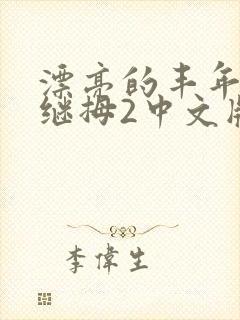 漂亮的丰年
继拇2中文版
李偉生